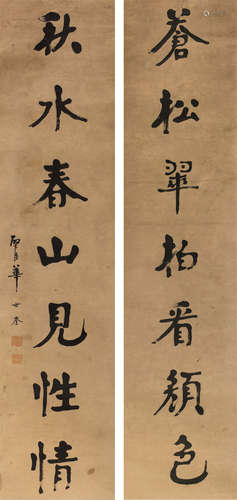 蒼松翠柏看顏色
秋水春山見性情
華世奎